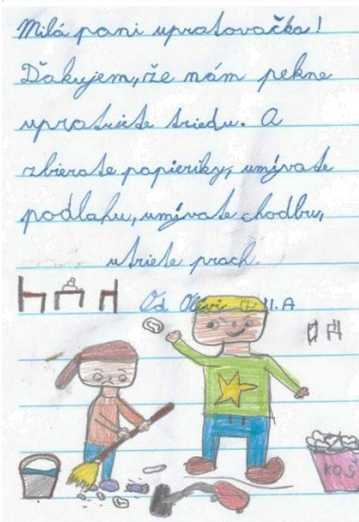 Milá pani upratovačka!
Ďakujem, že nám pekne
upratujete triedu. A
zbierate papieriky, umývate
podlahu, umývate chodbu,
utriete prach.
Od Olivi II.A
KOŠ